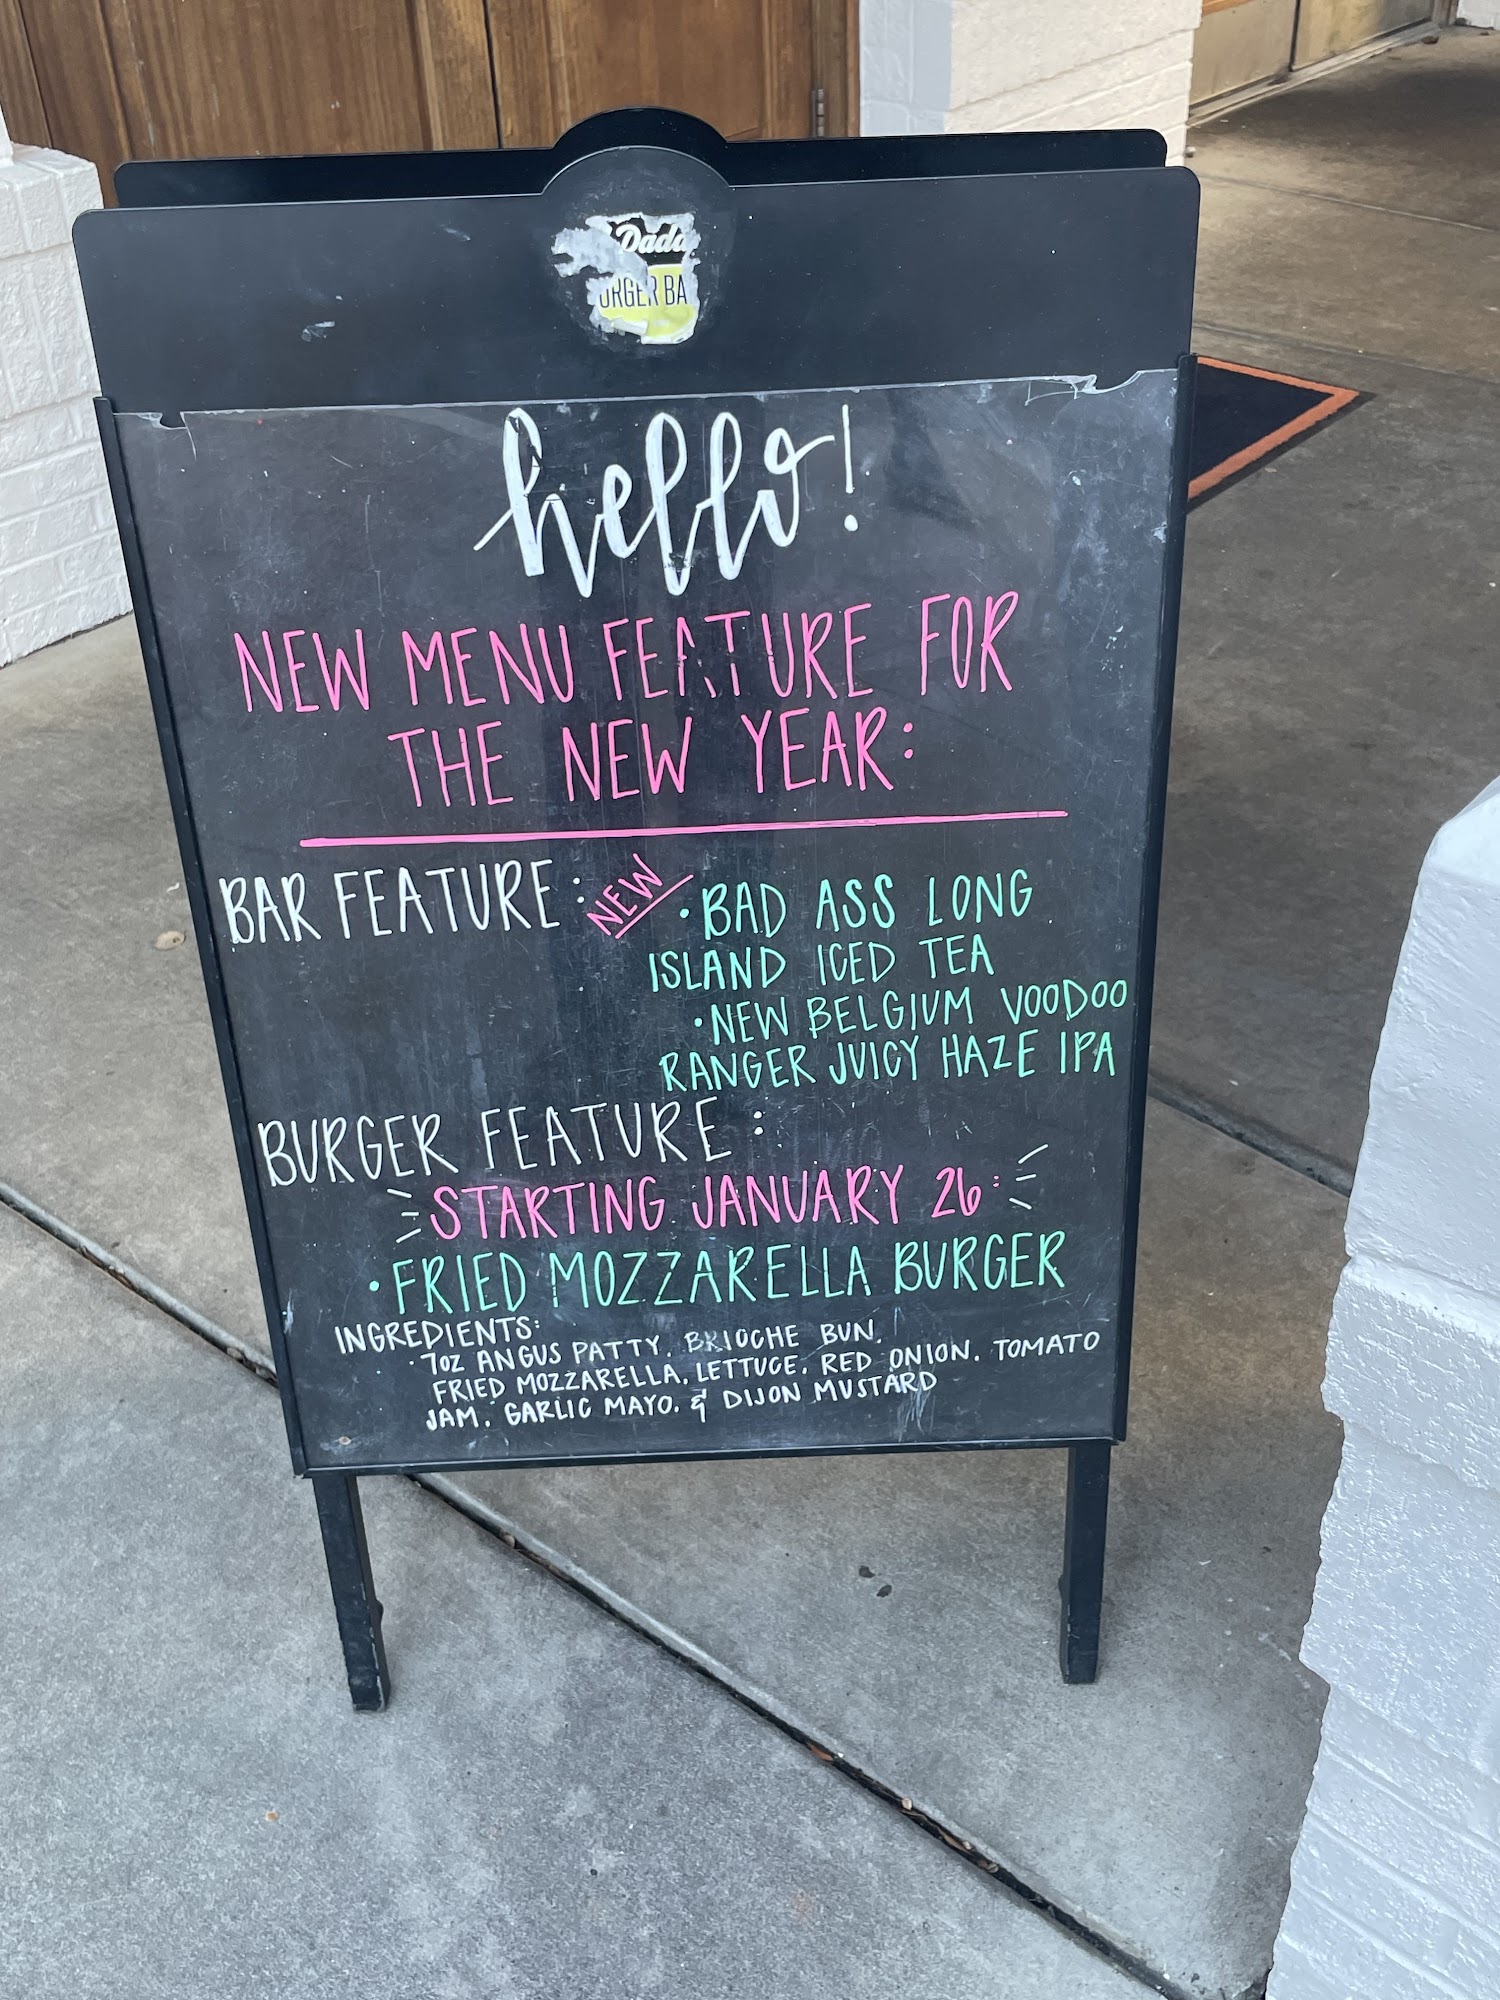 Dada
URGER BA
hello!
NEW MENU FEATURE FOR
THE NEW YEAR:
BAR FEATURE: NEW • BAD ASS LONG
ISLAND ICED TEA
• NEW BELGIUM VOODOO
RANGER JUICY HAZE IPA
BURGER FEATURE:
STARTING JANUARY 26:
• FRIED MOZZARELLA BURGER
INGREDIENTS:
• 7OZ ANGUS PATTY. BRIOCHE BUN.
FRIED MOZZARELLA. LETTUCE. RED ONION. TOMATO
JAM. GARLIC MAYO. & DIJON MUSTARD